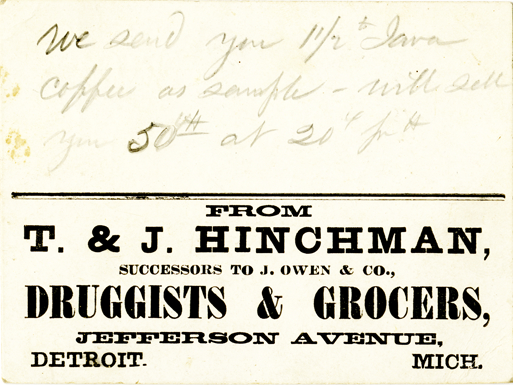 We send you 1 1/2 lb Java
coffee as sample - will sell
you 50 lb at 20 ¢ pr lb
FROM
T. & J. HINCHMAN,
SUCCESSORS TO J. OWEN & CO.,
DRUGGISTS & GROCERS,
JEFFERSON AVENUE,
DETROIT. MICH.